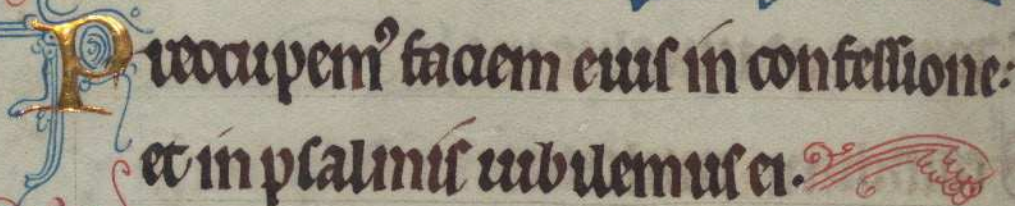 Preocupem⁹ faciem eius in confessione:
et in psalmis iubilemus ei.